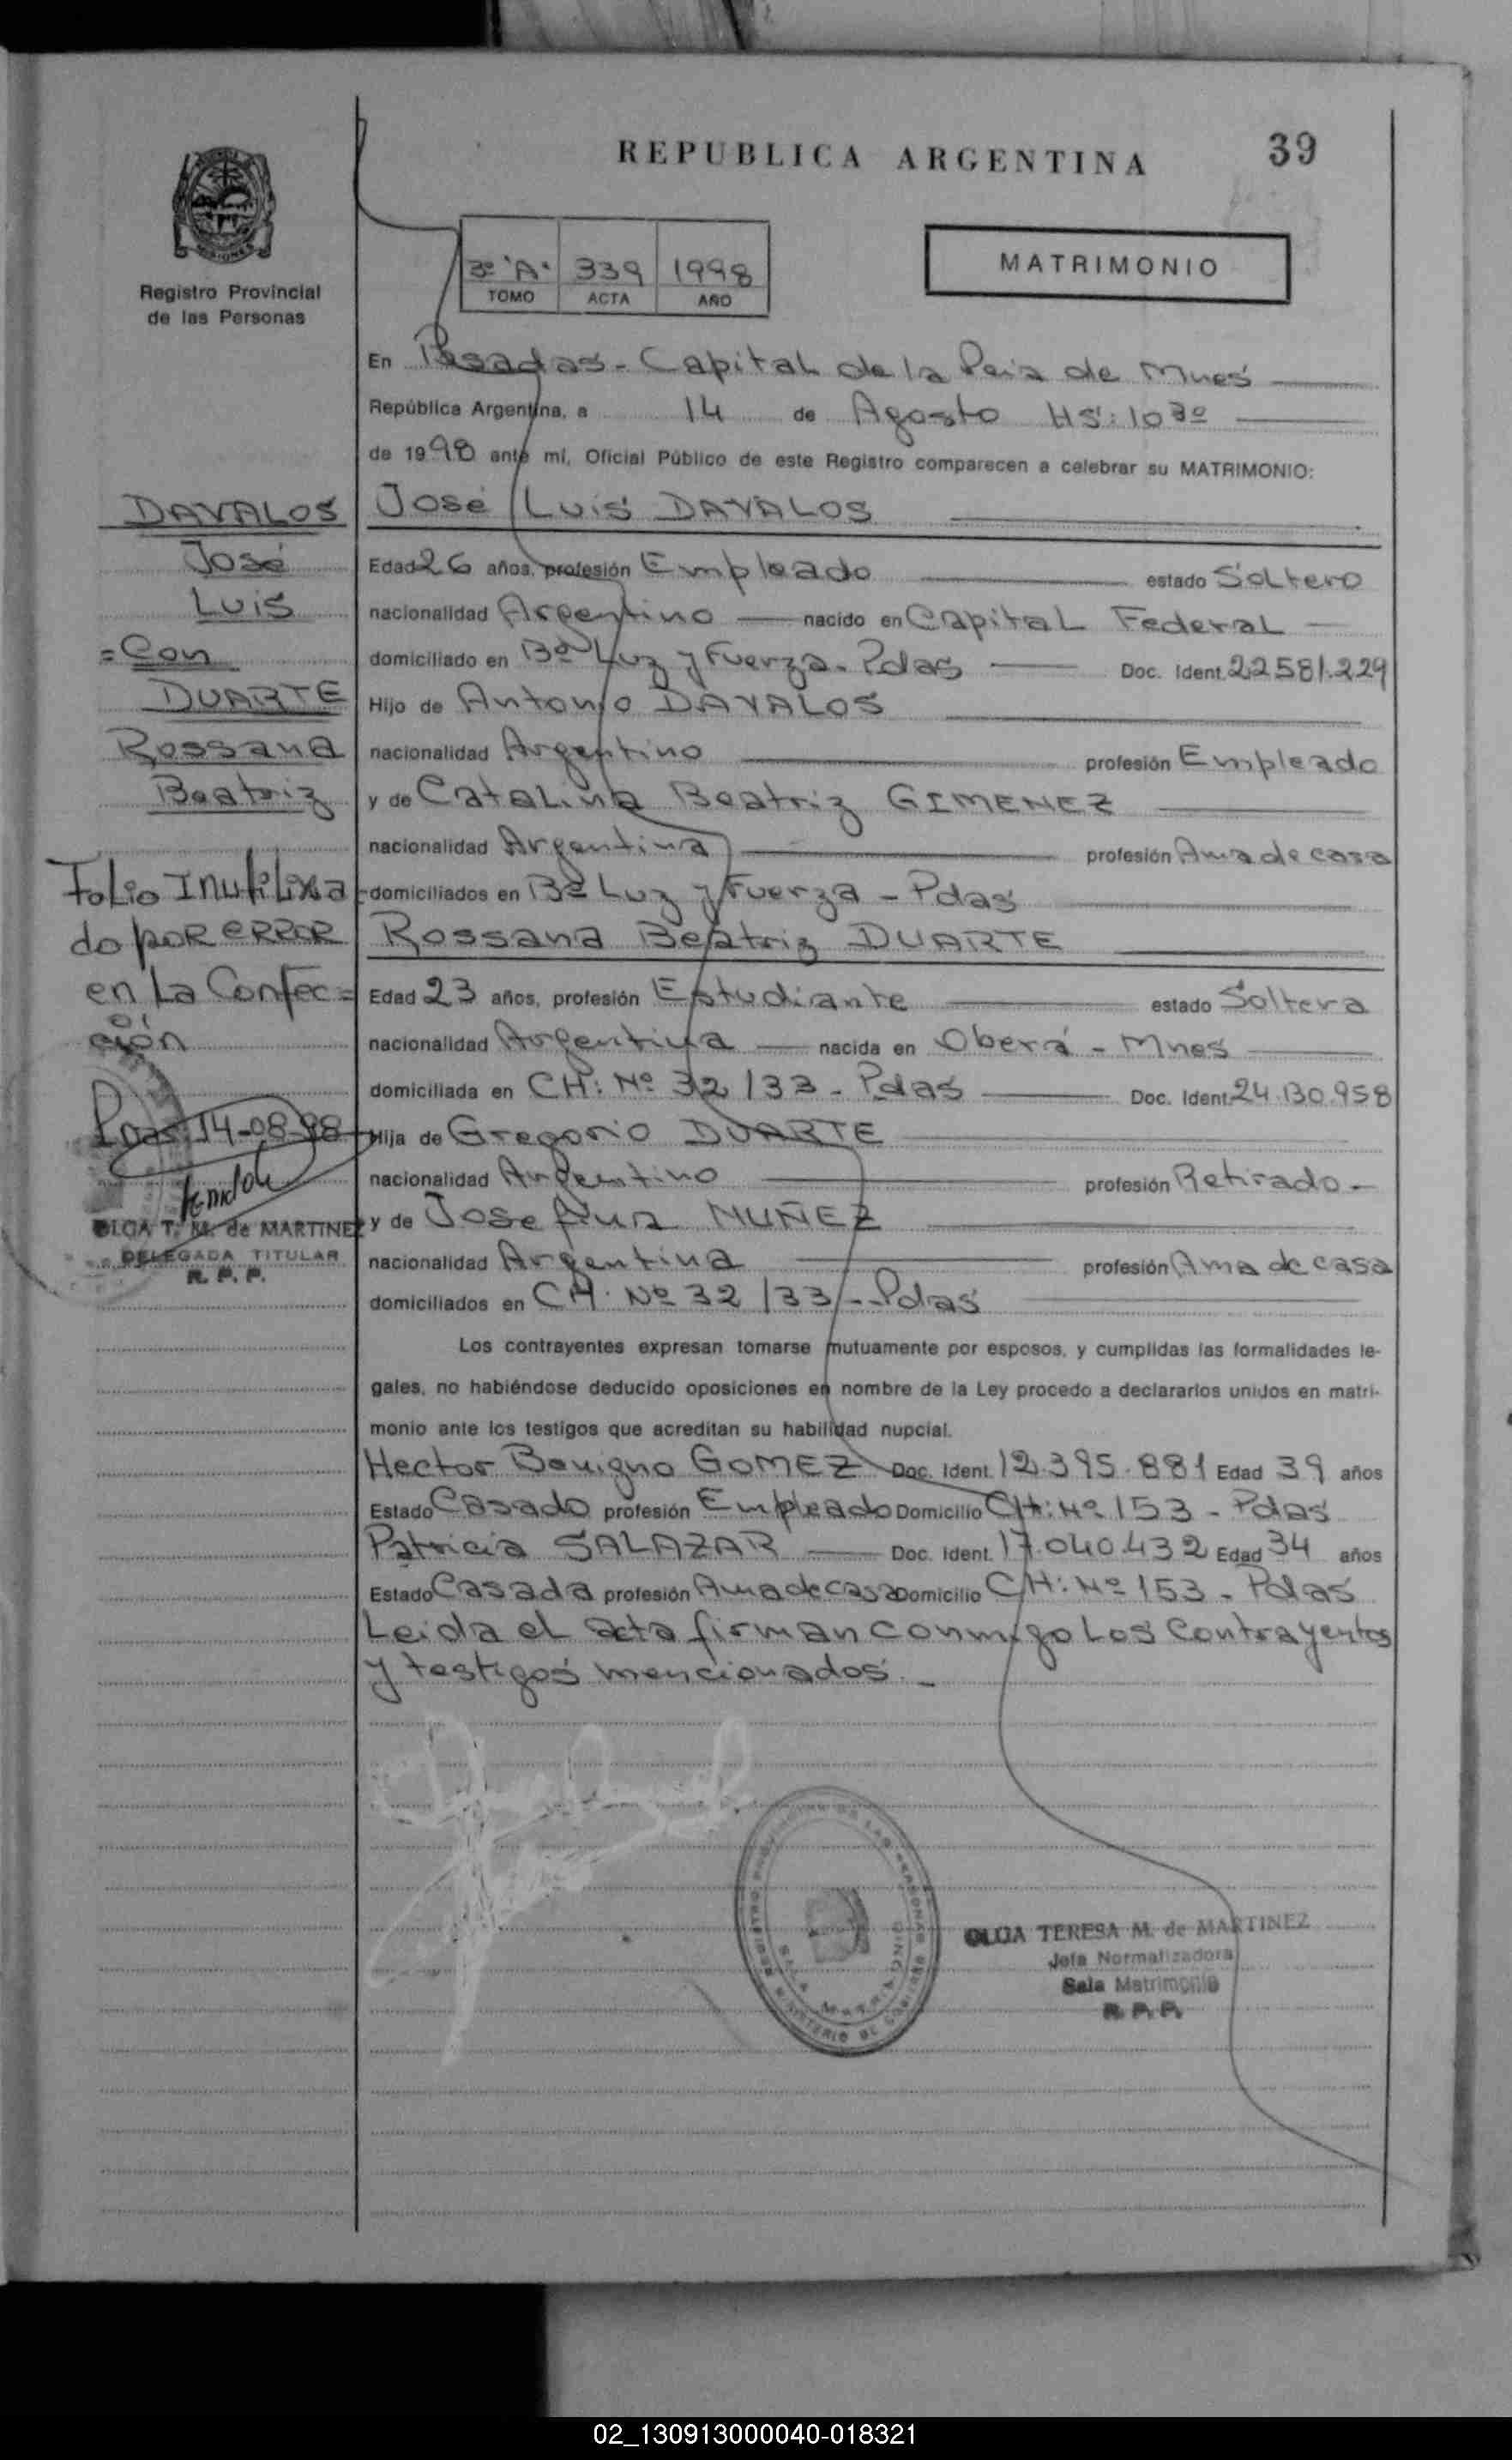 REPUBLICA ARGENTINA
39
MISIONES
Registro Provincial
de las Personas
3º "A" 339 1998
TOMO ACTA AÑO
MATRIMONIO
En Posadas - Capital de la Pcia de Mnes
República Argentina, a 14 de Agosto HS: 10 30
de 1998 ante mí, Oficial Público de este Registro comparecen a celebrar su MATRIMONIO:
DAVALOS
José
Luis
= Con
DUARTE
Rossana
Beatriz
Folio Inutiliza
do por error
en La Confec=
ción
Pdas 14-08-98
OLGA T. M. de MARTINEZ
DELEGADA TITULAR
R. P. P.
José Luis DAVALOS
Edad 26 años, profesión Empleado estado Soltero
nacionalidad Argentino nacido en Capital Federal
domiciliado en Bº Luz y Fuerza - Pdas Doc. Ident. 22.581.229
Hijo de Antonio DAVALOS
nacionalidad Argentino profesión Empleado
y de Catalina Beatriz GIMENEZ
nacionalidad Argentina profesión Ama de casa
domiciliados en Bº Luz y Fuerza - Pdas
Rossana Beatriz DUARTE
Edad 23 años, profesión Estudiante estado Soltera
nacionalidad Argentina nacida en Oberá - Mnes
domiciliada en CH: Nº 32/33 - Pdas Doc. Ident. 24.130.958
Hija de Gregorio DUARTE
nacionalidad Argentino profesión Retirado -
y de Josefina NUÑEZ
nacionalidad Argentina profesión Ama de casa
domiciliados en CH. Nº 32/33 - Pdas
Los contrayentes expresan tomarse mutuamente por esposos, y cumplidas las formalidades le-
gales, no habiéndose deducido oposiciones en nombre de la Ley procedo a declararlos unidos en matri-
monio ante los testigos que acreditan su habilidad nupcial.
Hector Benigno GOMEZ Doc. Ident. 12.395.881 Edad 39 años
Estado Casado profesión Empleado Domicilio CH: Nº 153 - Pdas
Patricia SALAZAR Doc. Ident. 17.040.432 Edad 34 años
Estado Casada profesión Ama de casa Domicilio CH: Nº 153 - Pdas
Leida el acta firman conmigo Los Contrayentes
y testigos mencionados. -
REGISTRO PROVINCIAL DE LAS PERSONAS
MINISTERIO DE GOBIERNO
SALA MATRIMONIO
OLGA TERESA M. de MARTINEZ
Jefa Normalizadora
Sala Matrimonio
R. P. P.
02_130913000040-018321